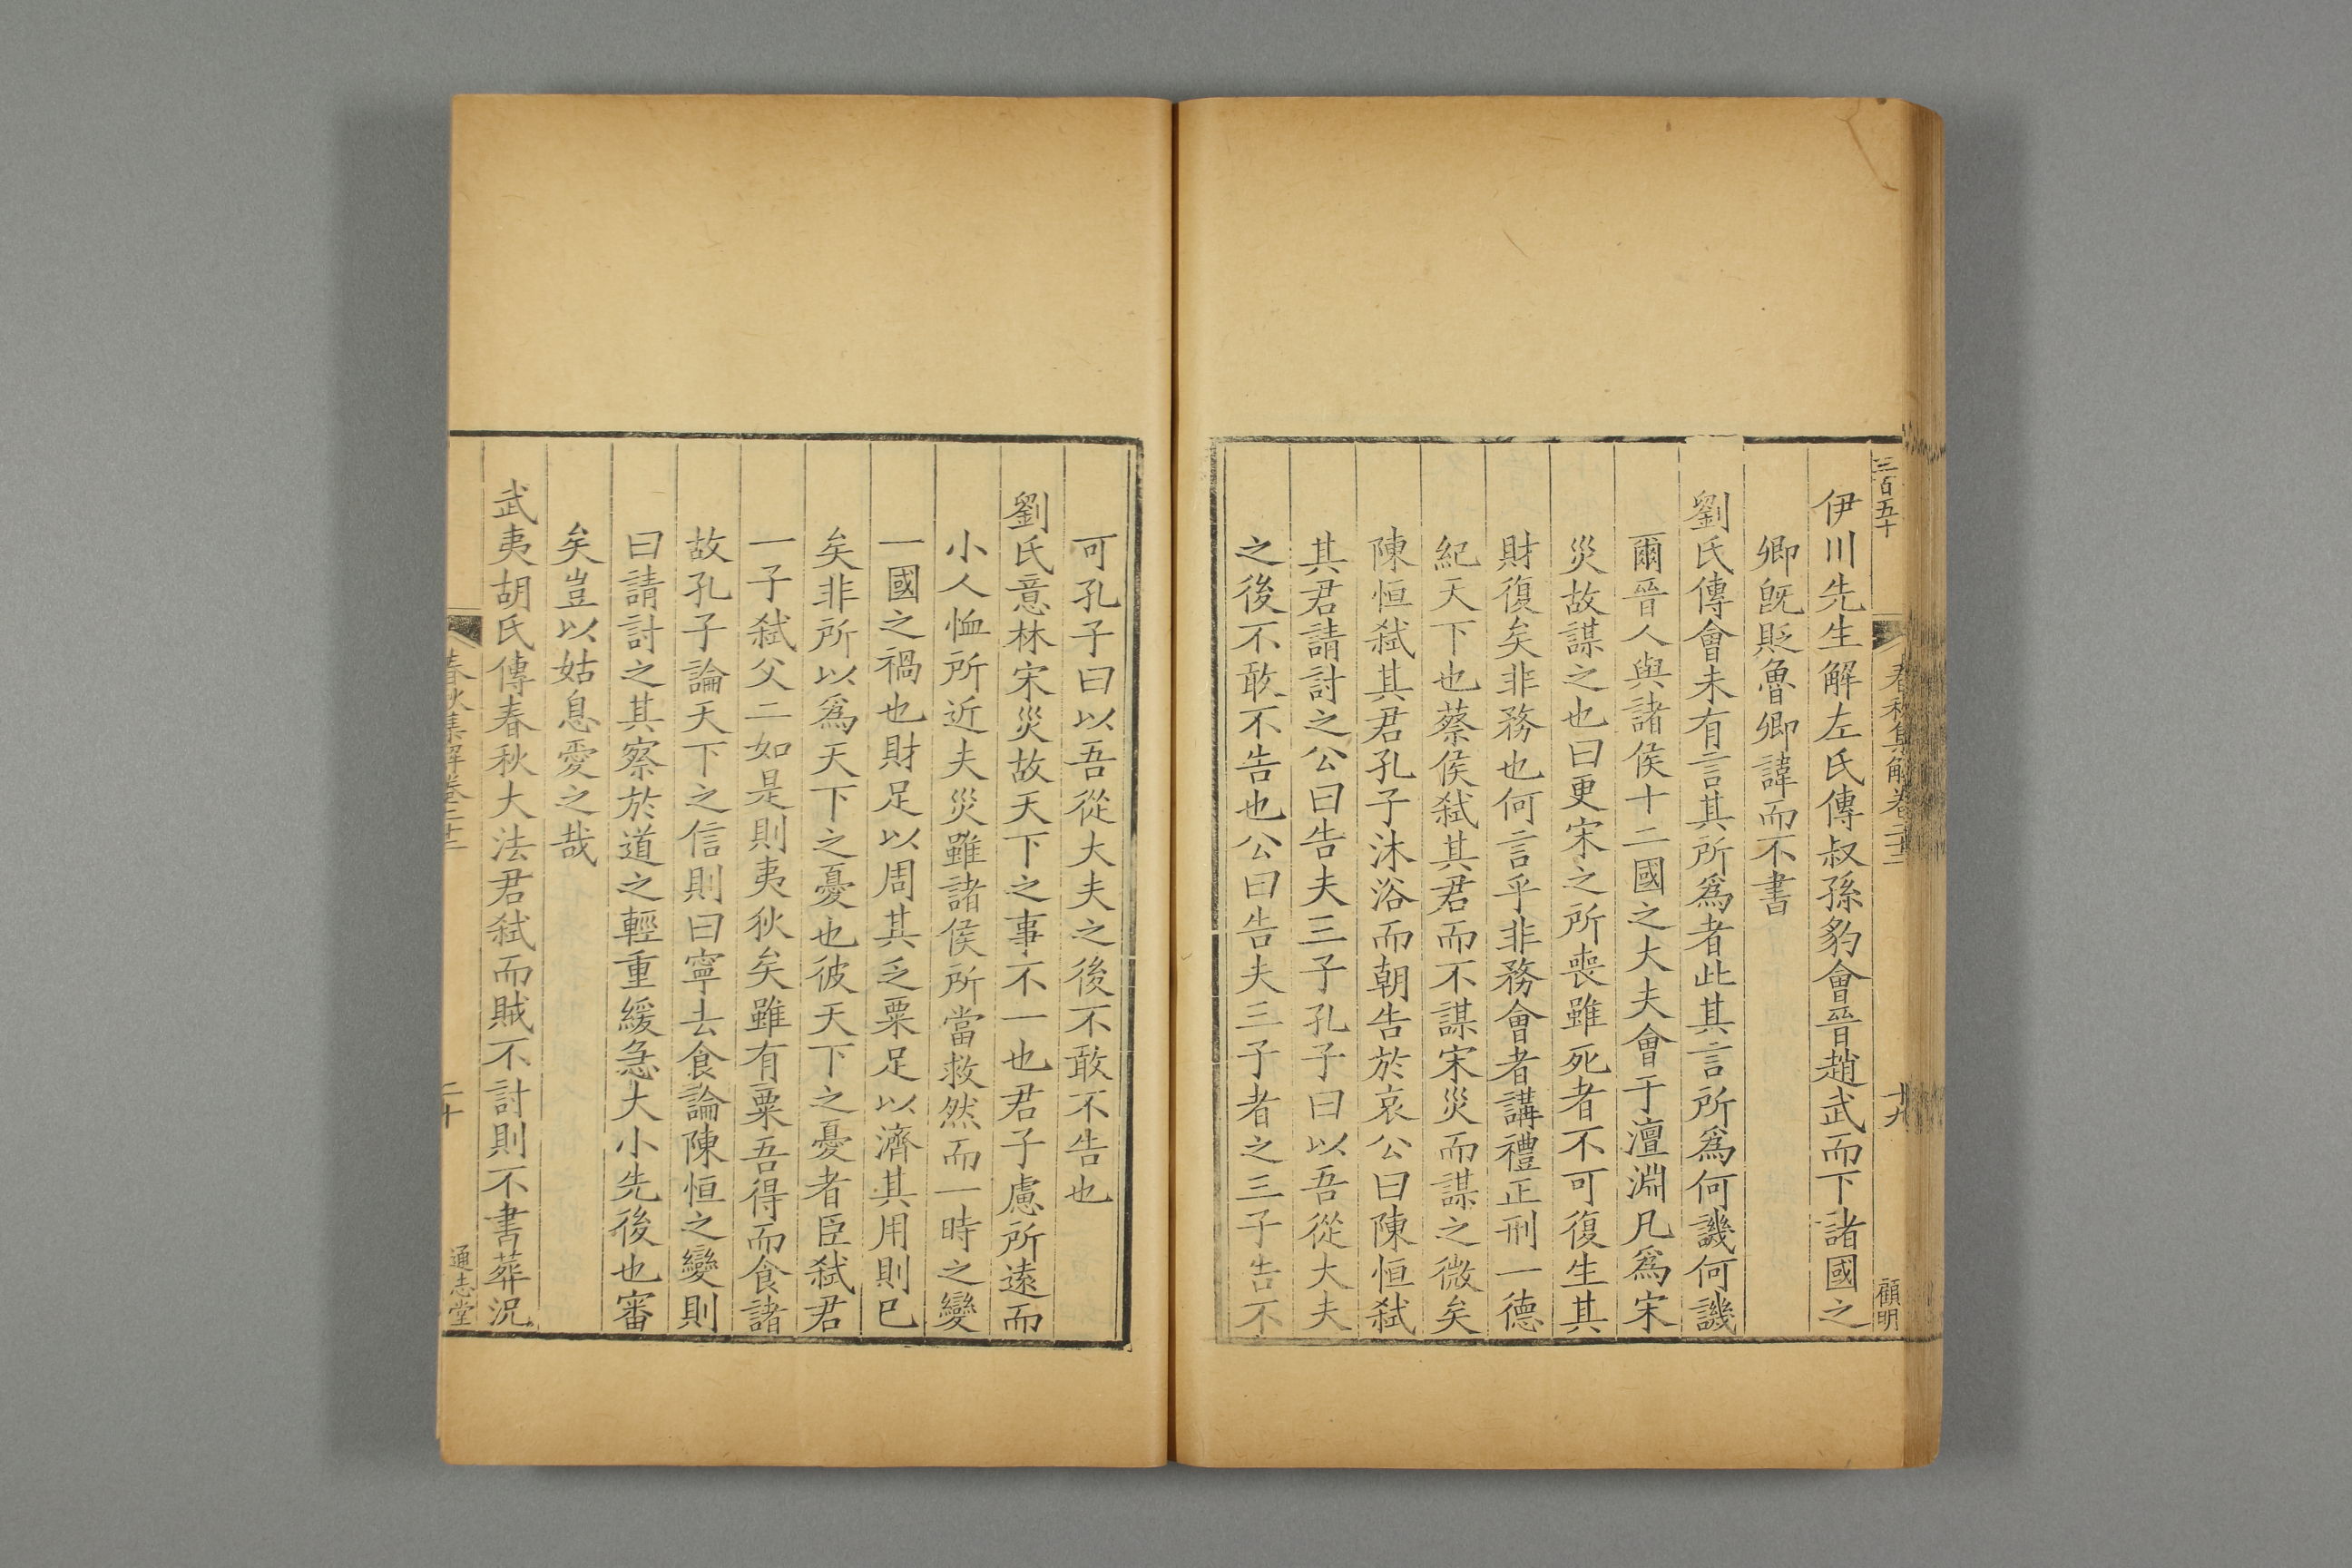 三百五十
春秋集解卷二十二
十九
顧明
伊川先生解左氏傳叔孫豹會晉趙武而下諸國之
卿旣貶魯卿諱而不書
劉氏傳會未有言其所爲者此其言所爲何譏何譏
爾晉人與諸侯十二國之大夫會于澶淵凡爲宋
災故謀之也曰更宋之所喪雖死者不可復生其
財復矣非務也何言乎非務會者講禮正刑一德
紀天下也蔡侯弑其君而不謀宋災而謀之微矣
陳恒弑其君孔子沐浴而朝告於哀公曰陳恒弑
其君請討之公曰告夫三子孔子曰以吾從大夫
之後不敢不告也公曰告夫三子者之三子告不
可孔子曰以吾從大夫之後不敢不告也
劉氏意林宋災故天下之事不一也君子慮所遠而
小人恤所近夫災雖諸侯所當救然而一時之變
一國之禍也財足以周其乏粟足以濟其用則已
矣非所以爲天下之憂也彼天下之憂者臣弑君
一子弑父二如是則夷狄矣雖有粟吾得而食諸
故孔子論天下之信則曰寧去食論陳恒之變則
曰請討之其察於道之輕重緩急大小先後也審
矣豈以姑息愛之哉
武夷胡氏傳春秋大法君弑而賊不討則不書葬況
春秋集解卷二十二
二十
通志堂